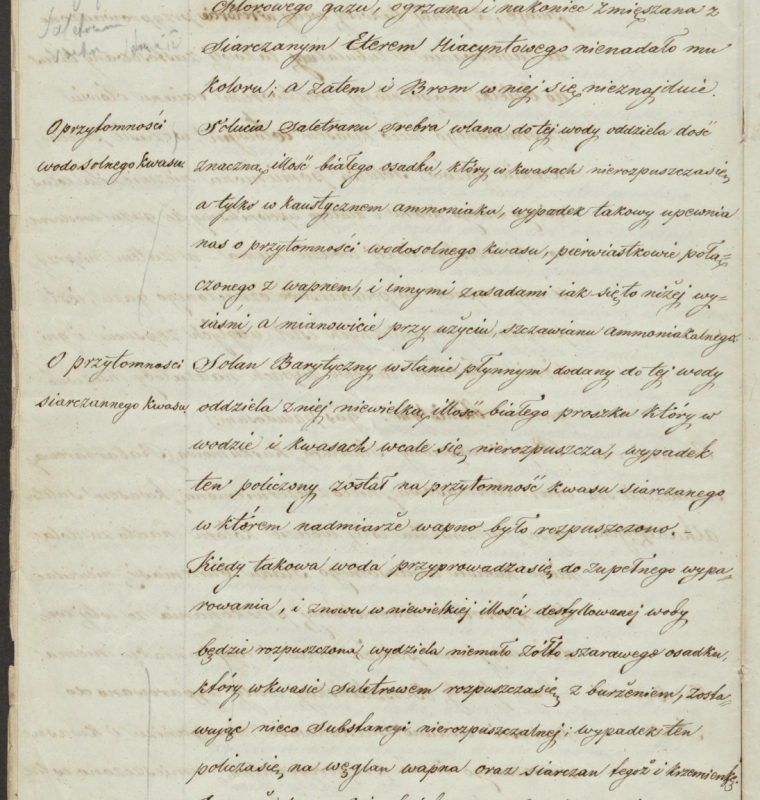 Chlorowego gazu, ogrzana i nakoniec zmięszana z
Siarczanym Eterem Hiacyntowego nienadało mu
koloru; a zatem i Brom w niej się nieznajduie.
O przytomności
wodosolnego kwasu.
Solucia Saletranu srebra wlana do tej wody oddziela dość
znaczną illość białego osadku, który w kwasach nierozpuszcza się,
a tylko w kaustycznem ammoniaku, wypadek takowy upewnia
nas o przytomności wodosolnego kwasu, pierwiastkowie połą=
czonego z wapnem, i innymi zasadami iak się to niżej wy=
iaśni, a mianowicie przy użyciu, szczawianu ammoniakalnego.
O przytomności
siarczannego kwasu,
Solan Barytyczny w stanie płynnym dodany do tej wody
oddziela z niej niewielką illość białego proszku który w
wodzie i kwasach wcale się nierozpuszcza, wypadek
ten policzony został na przytomność kwasu siarczanego
w którem nadmiarze wapno było rozpuszczono.
Kiedy takowa woda przyprowadza się do zupełnego wypa=
rowania, i znowu w niewielkiej illości destyllowanej wody
będzie rozpuszczona, wydziela niemało żółto szarawego osadku,
który w kwasie Saletrowem rozpuszcza się z burzeniem, zosta=
wując nieco Substancyi nierozpuszczalnej; wypadek ten
policza się na węglan wapna oraz siarczan tegoż i krzemienkę